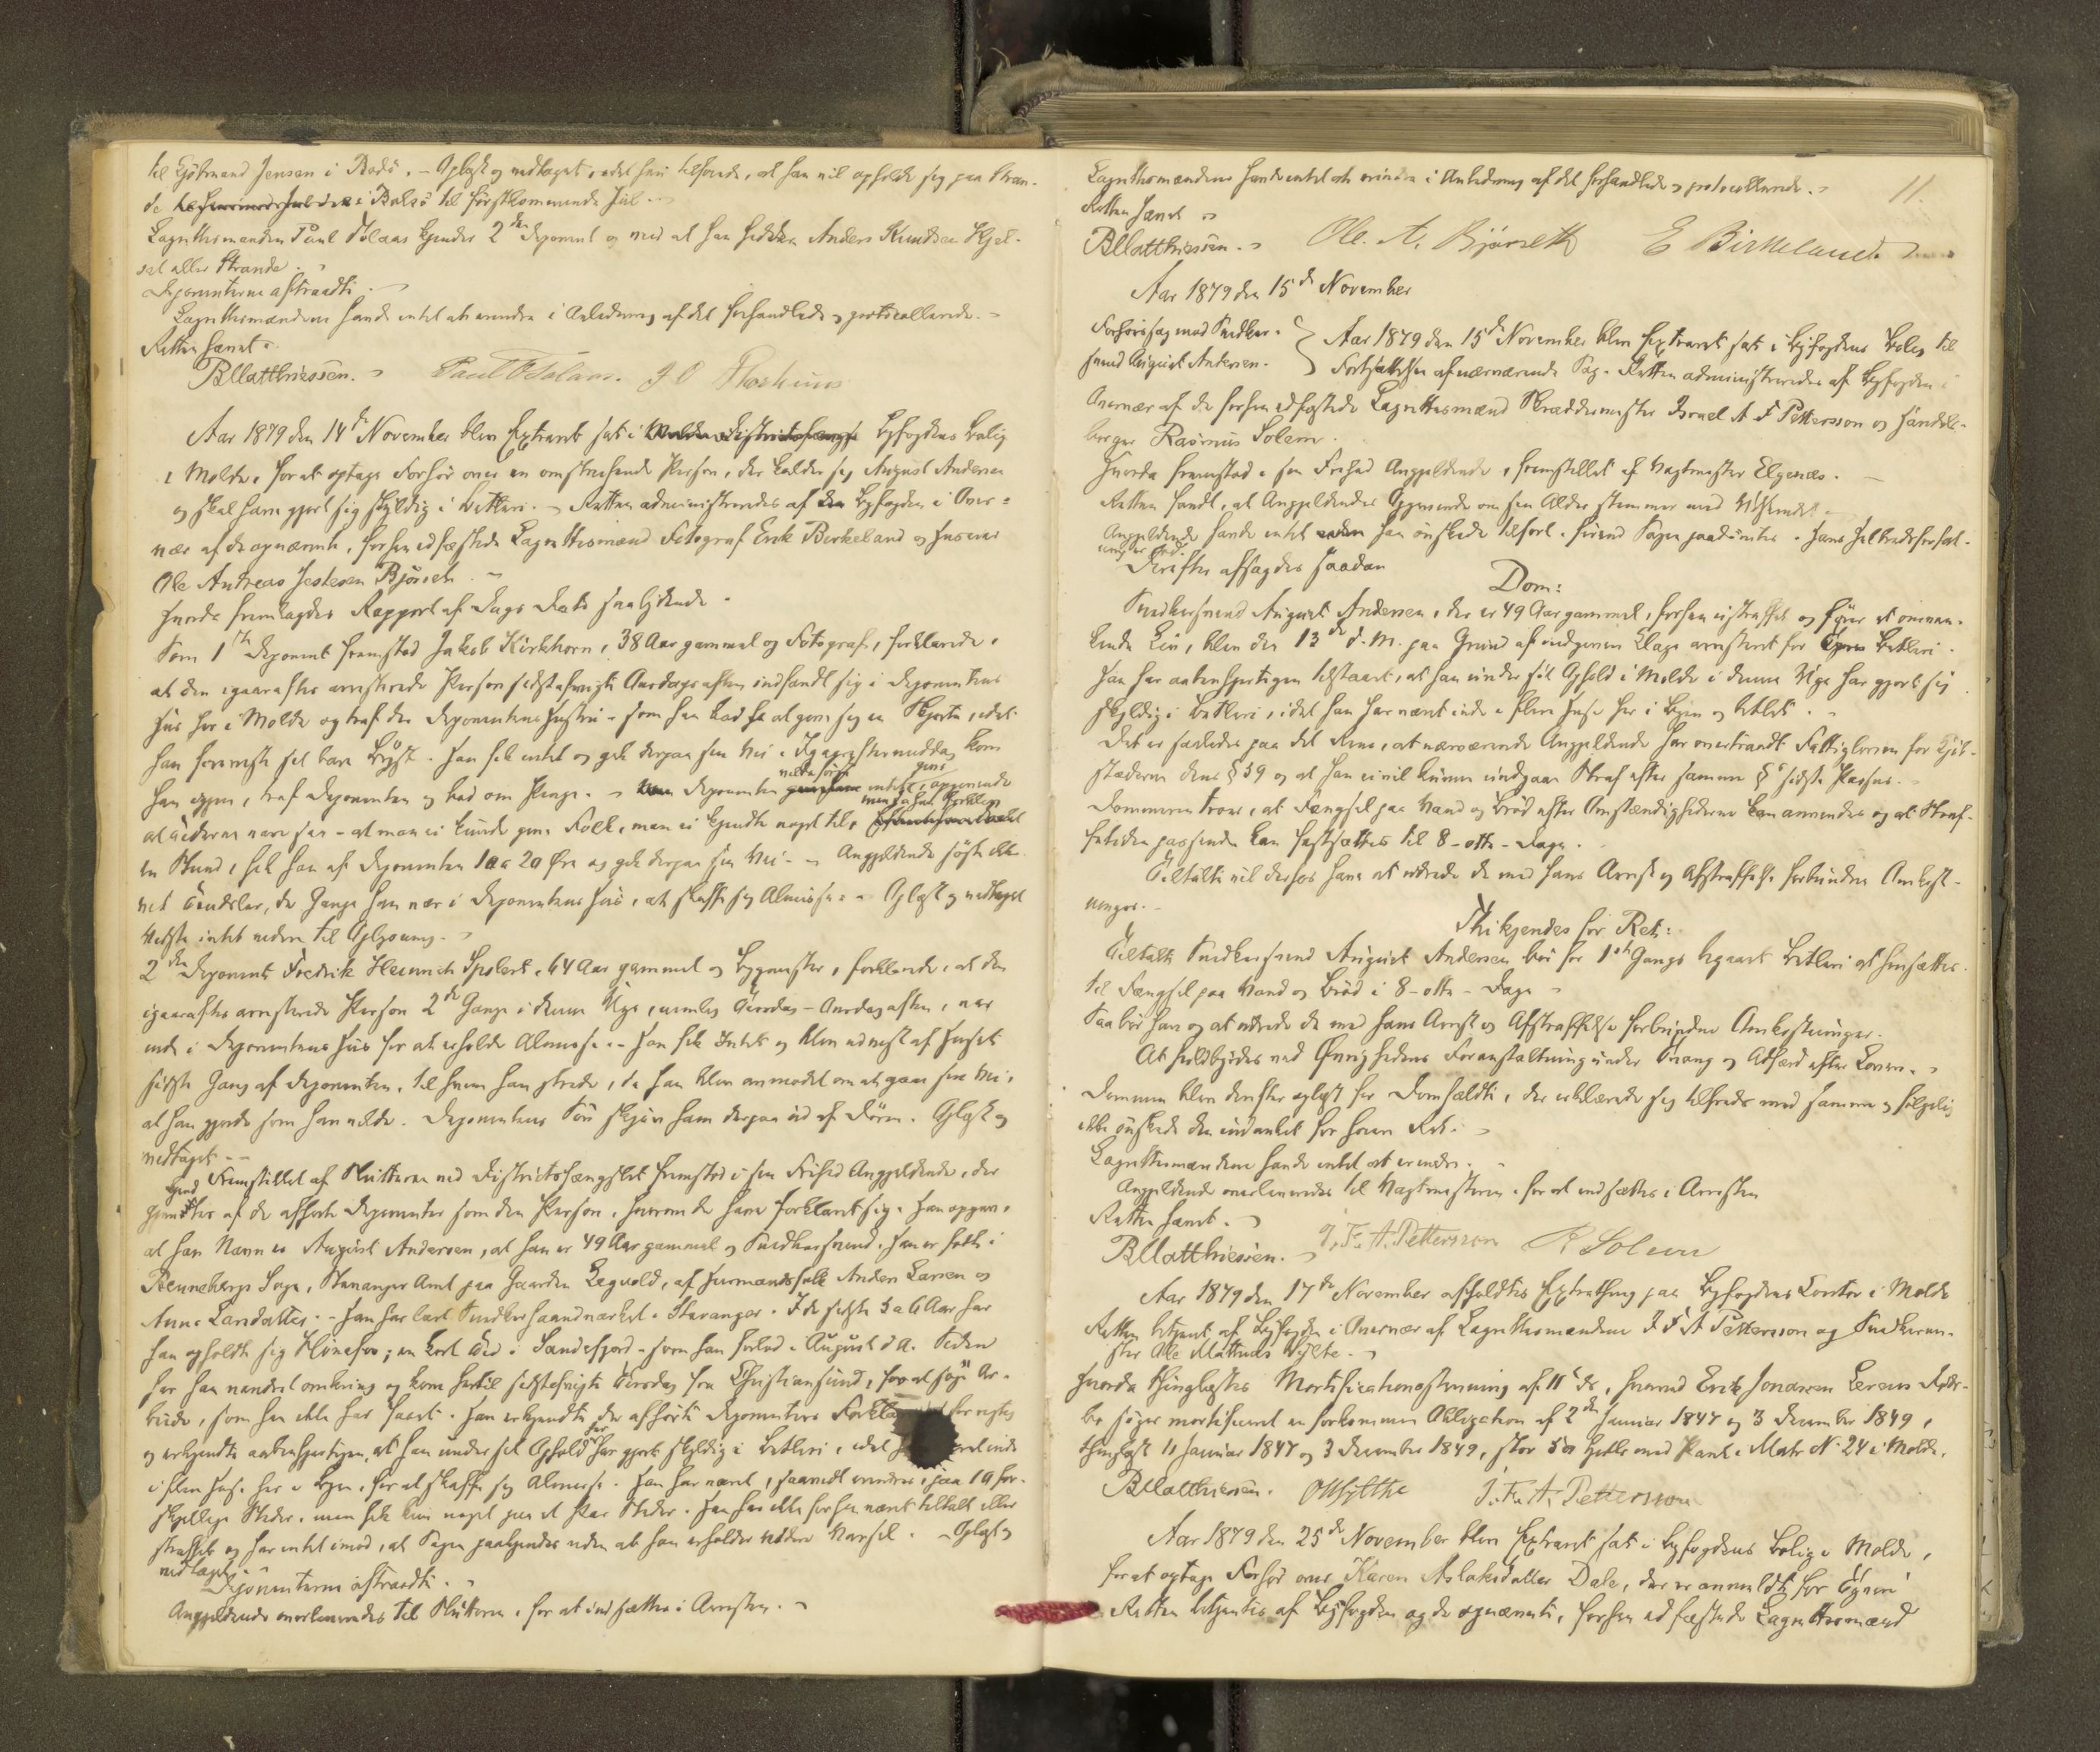 til Gjestmand Jensen i Bodö. – Oplæst og vedtaget, idet han tilføiede, at han vil opholde sig paa Stran-
de i Bolsö til førstkommende Jul. –
Lagrettesmanden Paul Tolaas kjender 2den Deponent og ved at han hedder Anders Knudsen Hjel-
set eller Strande.
Deponenterne aftraadte. –
Lagrettesmændene havde intet at erindre i Anledning af det forhandlede og protocollerede. –
Retten hævet.
BMatthiessen. Paul O Tolaas. J O
Aar 1879 den 14de November blev Extraret sat i Byfogdens Bolig
i Molde, for at optage Forhör over en omstreifende Person, der kalder sig August Andersen
og skal have gjort sig skyldig i Betleri. – Retten administreredes af Byfogden i Over-
vær af de opnævnte, forhen edfæstede Lagrettesmænd Fotograf Erik Birkeland og Huseier
Ole Andreas Jestesen Bjørseth. –
Hvorda fremlagdes Rapport af Dags Dato saalydende.
Som 1ste Deponent fremstod Jakob Kirkhorn, 38 Aar gammel og Fotograf, forklarede,
at den igaaraftes arresterede Person sidstafvigte Onsdags aften indfandt sig i Deponentens
Hus her i Molde og traf der Deponentens Hustru, som han bad om at give sig en Skjorte, idet
han foreviste sit bare Bryst. Han fik intet og gik derpaa sin Vei. Igaareftermiddag kom
han igjen, traf Deponenten og bad om Penge. – Deponenten vilde først intet give, angivende
at Tiderne vare saa – at man ei kunde give Folk, man ei kjendte noget til,
en Stund, fik han af Deponenten 10 a 20 Øre og gik derpaa sin Vei. – Angjeldende søgte eller
ved Trudsler, de Gange han var i Deponentens Hus, at skaffe sig Almisse. – Oplæst og vedtaget
Vidste intet videre til Oplysning. –
2den Deponent Fredrik Heinrich Spolert, 64 Aar gammel og Bygmester, forklarede, at den
igaaraftes arresterede Person 2de Gange i denne Uge, nemlig Tirsdag – Onsdagaften, var
inde i Deponentens Hus for at erholde Almisse. – Han fik Intet og blev udvist af Huset
sidste Gang af Deponenten, til hvem han svarede, da han blev anmodet om at gaae sin Vei,
at han gjorde som han vilde. Deponentens Søn skjøv ham derpaa ud af Døren. Oplæst og
vedtaget. –
Fremstillet af Slutteren ved Districtsfængslet fremstod i sin Frihed Angjeldende, der
gjenkjendtes af de afhørte Deponenter som den Person, hvorom de have forklaret sig. Han opgav,
at hans Navn er August Andersen, at han er 49 Aar gammel og Snedkersvend. Han er født i
Rennebergs Sogn, Stavanger Amt paa Gaarden Legvold, af Husmandsfolk Anders Larsen og
Anne Larsdatter. – Han har lært Snedkerhaandværket i Stavanger. I de sidste 5 a 6 Aar har
han opholdt sig Hönefos; en kort Tid i Sandefjord – som han forlod i August d. A. Siden
har han vandret omkring og kom hertil sidstafvigte Tirsdag fra Christiansund, for at søge Ar-
beide, som han ikke har faaet. Han erkjendte de afhørte Deponenters Forklaring for rigtig
og erkjendte aabenhjertigen, at han under sit Ophold her har gjort skyldig i Betleri, idet inde
i flere Huse her i Byen, for at skaffe sig Almisse. Han har været, saavidt erindres, paa 10 for-
skjellige Steder, men fik kun noget paa et Par Steder. Han har ikke forhen været tiltalt eller
straffet og har intet imod, at Sagen paakjendes uden at han erholder videre Varsel. – Oplæst og
vedtaget.
Deponenterne aftraadte. –
Angjeldende overleveredes til Slutteren, for at indsættes i Arresten. –
11.
Lagrettesmændene havde intet at erindre i Anledning af det forhandlede og protocollerede. –
Retten hævet. –
BMatthiessen. – Ole. A. Bjørseth E Birkeland.
Aar 1879 den 15de November
Forhørssag mod Snedker-
svend August Andersen.
Aar 1879 den 15de November blev Extraret sat i Byfogdens Bolig til
Fortsættelse af nærværende Sag. Retten administreredes af Byfogden i
Overvær af de forhen edfæstede Lagrettesmænd Skræddermester Israel A F Pettersson og Handels-
borger Rasmus Solem.
Hvorda fremstod i sin Frihed Angjeldende, fremstillet af Vagtmester Elgenes. –
Retten fandt, at Angjeldendes Opgivende om sin Alder stemmer med Udseendet. –
Angjeldende havde intet han ønskede tilført, førend Sagen paadömtes.
Derefter afsagdes saadan
Dom:
Snedkersvend August Andersen, der er 49 Aar gammel, forhen ustraffet og fører et omvan-
kende Liv, blev den 13de d. M. paa Grund af indgiven Klage arresteret for Betleri.
Han har aabenhjertigen tilstaaet, at han under sit Ophold i Molde i denne Uge har gjort sig
skyldig i Betleri, idet han har været inde i flere Huse her i Byen og betlet. –
Det er saaledes paa det Rene, at nærværende Angjeldende har overtraadt Fattigloven for Kjøb-
stæderne dens § 59 og at han vil kunne undgaae Straf efter samme §'s sidste Passus. –
Dommeren troer, at Fængsel paa Vand og Brød efter Omstændighederne kan anvendes og at Straf-
fetiden passende kan fastsættes til 8 – otte – Dage. –
Tiltalte vil derhos have at udrede de med hans Arrest og Afstraffelse forbundne Omkost-
ninger. –
Thi kjendes for Ret:
Tiltalte Snedkersvend August Andersen bör for 1ste Gangs begaaet Betleri at hensættes
til Fængsel paa Vand og Brød i 8 – otte – Dage –
Saa bør han og at udrede de med hans Arrest og Afstraffelse forbundne Omkostninger.
At fuldbyrdes ved Øvrighedens Foranstaltning under Tvang og Adfærd efter Loven. –
Dommen blev derefter oplæst for Domfældte, der erklærede sig tilfreds med samme og følgelig
ikke ønskede den indanket for høiere Ret. –
Lagrettesmændene havde intet at erindre. –
Angjeldende overleveredes til Vagtmesteren, for at indsættes i Arresten
Retten hævet. –
BMatthiessen. – I. F. A. Pettersson R Solem
Aar 1879 den 17de November afholdtes Extrathing paa Byfogdens Contor i Molde
Retten betjent af Byfogden i Overvær af Lagrettesmændene I F A Pettersson og Snedkerme-
ster Ole Mathias Hylte. –
Hvorda thinglæstes Mortificationsstevning af 11te ds, hvorved Erik Jonassen Lereim Rods-
bø søger mortificeret en forkommen Obligation af 2den Januar 1847 og 3 December 1849,
thinglæst 11 Januar 1847 og 3 December 1849, stor 50 med Pant i Matr N. 24 i Molde.
BMatthiessen. OMHylthe I. F. A. Pettersson
Aar 1879 den 25de November blev Extraret sat i Byfogdens Bolig i Molde,
for at optage Forhør over Karen Aslaksdatter Dale, der er anmeldt for Tyveri
– Retten betjentes af Byfogden og de opnævnte, forhen edfæstede Lagrettesmænd